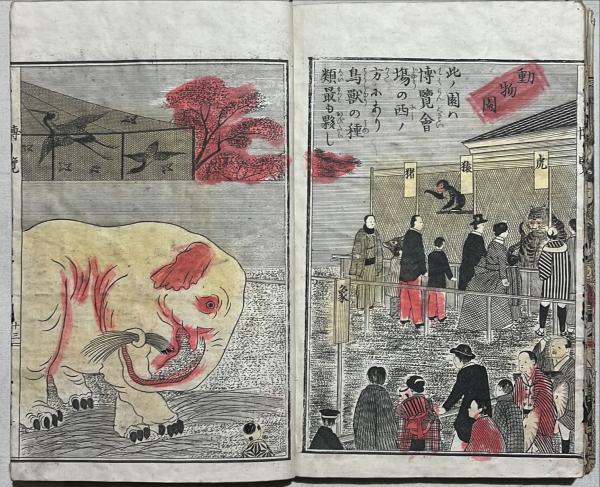 動物園
此ノ園ハ
博覽會
場の西ノ
方にあり
鳥獣の種
類最も夥し
猪
猿
虎
象
博覽
十三